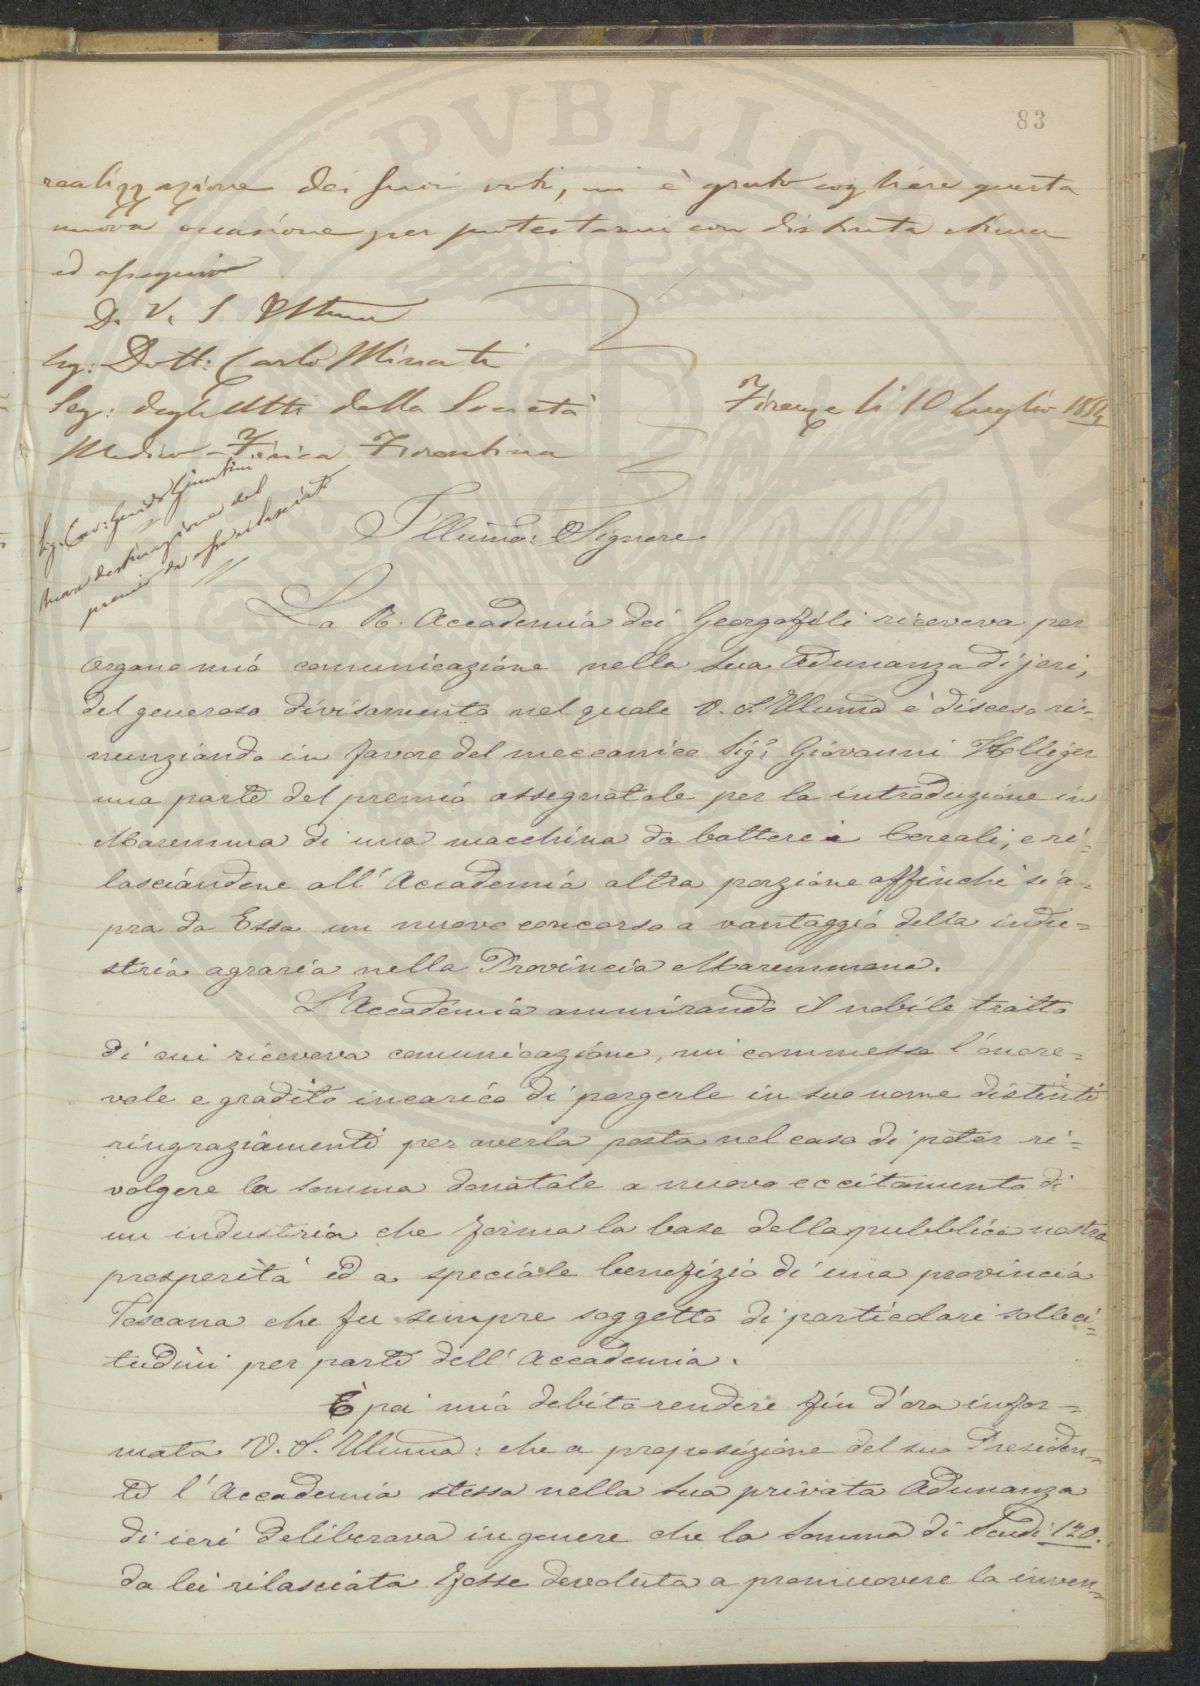 83
realizzazione dei suoi voti, mi è grato cogliere questa
nuova occasione per protestarmi con distinta stima
ed ossequio
Di V. S. Illma
Sig: Dott: Carlo Minati
Seg: degli Atti della Società
Medico-Fisica Fiorentina
Firenze li 10 Luglio 1854
Sig. Cav: Guido Giuntini
Nuova destinazione del
premio da esso rilasciato
Illumo: Signore
La R. Accademia dei Georgofili riceveva per
organo mio comunicazione nella sua Adunanza di jeri,
del generoso divisamento nel quale V. S. Illuma è discesa ri=
nunziando in favore del meccanico Sigr: Giovanni
una parte del premio assegnatole per la introduzione in
Maremma di una macchina da battere i Cereali, e ri=
lasciandone all'Accademia altra porzione affinchè si a=
pra da Essa un nuovo concorso a vantaggio della indu=
stria agraria nella Provincia Maremmana.
L'Accademia ammirando il nobile tratto
di cui riceveva comunicazione, mi commesse l'onore=
vole e gradito incarico di porgerle in suo nome distinti
ringraziamenti per averla posta nel caso di poter ri=
volgere la somma donatale a nuovo eccitamento di
un industria che forma la base della pubblica nostra
prosperità ed a speciale benefizio di una provincia
Toscana che fu sempre soggetto di particolari solleci=
tudini per parte dell'Accademia.
È poi mio debito rendere fin d'ora infor=
mata V. S. Illuma: che a proposizione del suo Presiden=
te l'Accademia stessa nella sua privata Adunanza
di ieri deliberava in genere che la Somma di Scudi 120.
da lei rilasciata fosse devoluta a promuovere la inven=